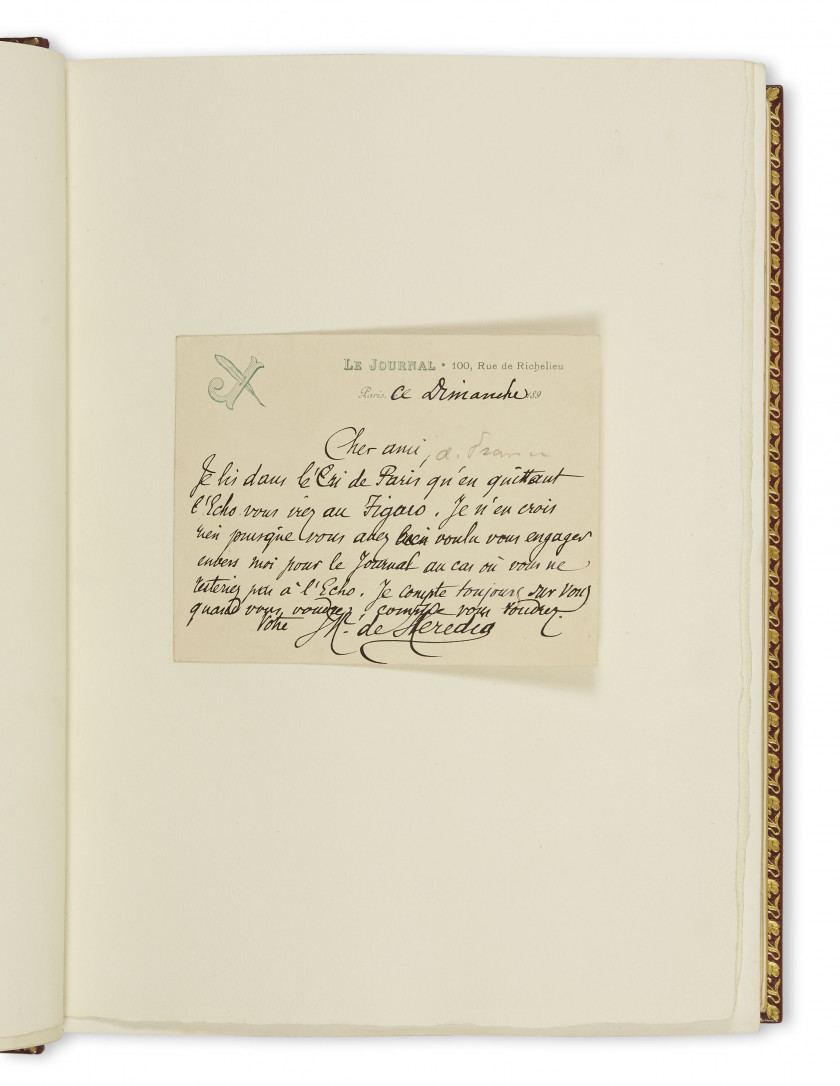 LE JOURNAL * 100, Rue de Richelieu
Paris, ce Dimanche 189
Cher ami, a. France
Je lis dans le Cri de Paris qu'en quittant
l'Echo vous irez au Figaro. Je n'en crois
rien puisque vous avez bien voulu vous engager
envers moi pour le Journal au cas où vous ne
resteriez pas à l'Echo. Je compte toujours sur vous
quand vous voudrez, comme vous voudrez.
Votre JM. de Heredia